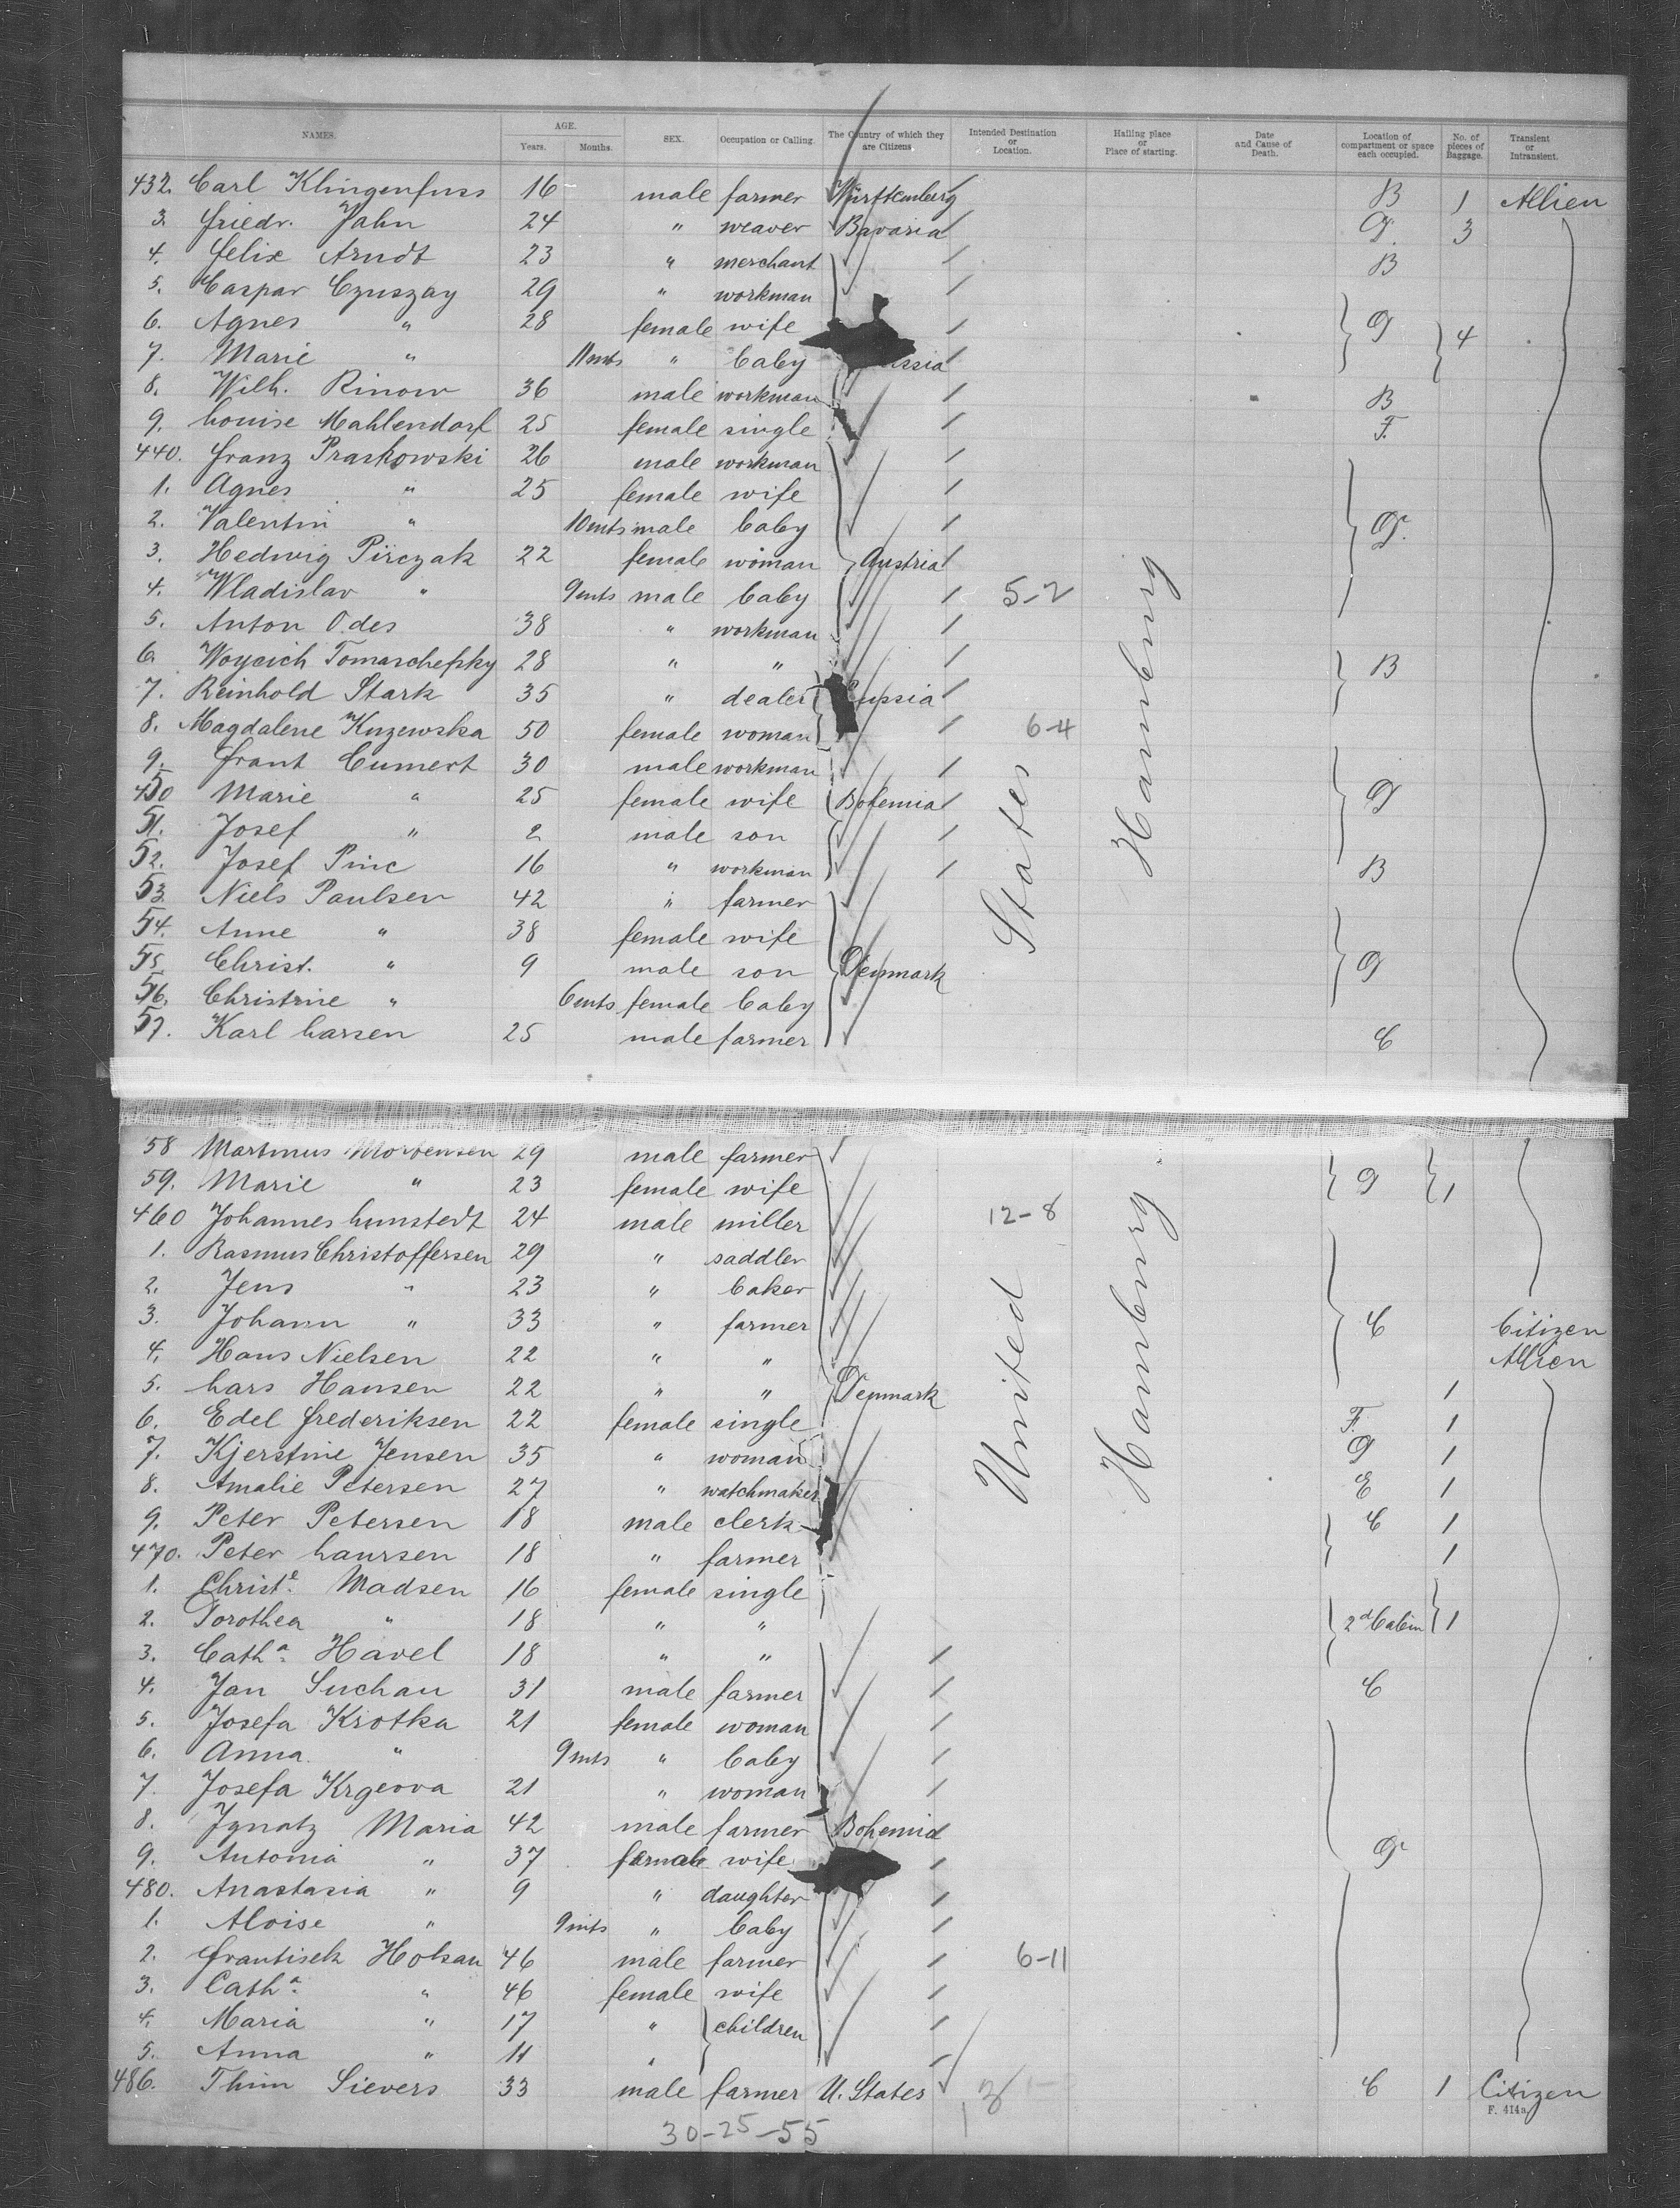 NAMES. AGE. Years. Months. SEX. Occupation or Calling. The Country of which they are Citizens. Intended Destination or Location. Hailing place or Place of starting. Date and Cause of Death. Location of compartment or space each occupied. No. of pieces of Baggage. Transient or Intransient.
432. Carl Klingenfuss 16 male farmer Württemberg B 1 Allien
3. Friedr. Jahn 24 " weaver Bavaria G. 3
4. Felix Arndt 23 " merchant B
5. Caspar Czuszay 29 " workman
6. Agnes " 28 female wife G 4
7. Marie " 11 mts " baby
8. Wilh. Rinow 36 male workman B
9. Louise Mahlendorf 25 female single F.
440. Franz Praskowski 26 male workman
1. Agnes " 25 female wife
2. Valentin " 10 mts male baby G.
3. Hedwig Pirczak 22 female woman Austria
4. Wladislav " 9 mts male baby 5-2
5. Anton Odes 38 " workman
6. Woycich Tomaschefsky 28 " " B
7. Reinhold Stark 35 " dealer
8. Magdalene Knzewska 50 female woman 6-4
9. Frant Cumert 30 male workman
450 Marie " 25 female wife Bohemia G
51. Josef " 2 male son
52. Josef Pinc 16 " workman B
53. Niels Paulsen 42 " farmer
54. Anne " 38 female wife
55. Christ. " 9 male son Denmark G
56. Christine " 6 mts female baby
57. Karl Larsen 25 male farmer C
States
Hamburg
58 Martinus Mortensen 29 male farmer
59. Marie " 23 female wife G 1
460 Johannes Lunstedt 24 male miller 12-8
1. Rasmus Christoffersen 29 " saddler
2. Jens " 23 " baker
3. Johann " 33 " farmer C Citizen
4. Hans Nielsen 22 " " Allien
5. Lars Hansen 22 " " Denmark 1
6. Edel Frederiksen 22 female single F. 1
7. Kjerstine Jensen 35 " woman G 1
8. Amalie Petersen 27 " watchmaker E 1
9. Peter Petersen 18 male clerk C 1
470. Peter Laursen 18 " farmer 1
1. Christe. Madsen 16 female single
2. Dorothea " 18 " " 2d Cabin 1
3. Catha. Havel 18 " "
4. Jan Suchan 31 male farmer C
5. Josefa Krotka 21 female woman
6. Anna " 9 mts " baby
7. Josefa Krgeova 21 " woman
8. Ignatz Maria 42 male farmer Bohemia
9. Antonia " 37 female wife G
480. Anastasia " 9 " daughter
1. Aloise " 9 mts " baby
2. Frantisek Holsan 46 male farmer 6-11
3. Catha. " 46 female wife
4. Maria " 17 " children
5. Anna " 11 "
486. Thim Sievers 33 male farmer U. States C 1 Citizen
United
Hamburg
F. 414a
30-25-55